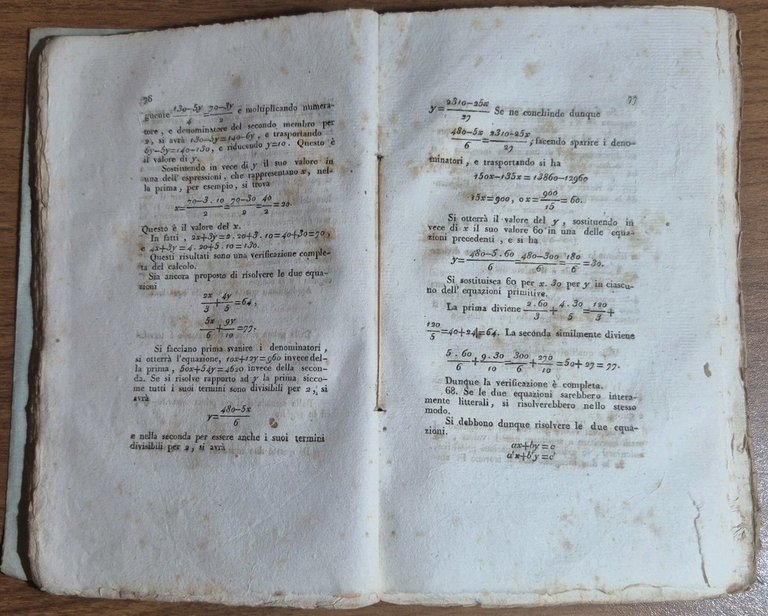 76
guente 130-5y/4=70-3y/2 e moltiplicando numera-
tore, e denominatore del secondo membro per
2, si avrà 130-5y=140-6y, e trasportando
6y-5y=140-130, e riducendo y=10. Questo è
il valore di y.
Sostituendo in vece di y il suo valore in
una dell' espressioni, che rappresentano x, nel-
la prima, per esempio, si trova
x=70-3.10/2=70-30/2=40/2=20.
Questo è il valore del x.
In fatti, 2x+3y=2.20+3.10=40+30=70,
e 4x+3y=4.20+5.10=130.
Questi risultati sono una verificazione comple-
ta del calcolo.
Sia ancora proposto di risolvere le due equa-
zioni
2x/3+4y/5=64,
5x/6+9y/10=77.
Si facciano prima svanire i denominatori,
si otterrà l'equazione, 10x+12y=960 invece del-
la prima, 50x+54y=4620 invece della secon-
da. Se si risolve rapporto ad y la prima sicco-
me tutti i suoi termini sono divisibili per 2, si
avrà
y=480-5x/6
e nella seconda per essere anche i suoi termini
divisibili per 2, si avrà
77
y=2310-25x/27 Se ne conchiude dunque
480-5x/6=2310-25x/27, facendo sparire i deno-
minatori, e trasportando si ha
150x-135x=13860-12960
15x=900, o x=900/15=60.
Si otterrà il valore del y, sostituendo in
vece di x il suo valore 60 in una delle equa-
zioni precedenti, e si ha
y=480-5.60/6=480-300/6=180/6=30.
Si sostituisca 60 per x. 30 per y in ciascu-
no dell' equazioni primitive.
La prima diviene 2.60/3+4.30/5=120/3+
120/5=40+24=64. La seconda similmente diviene
5.60/6+9.30/10=300/6+270/10=50+27=77.
Dunque la verificazione è completa.
68. Se le due equazioni sarebbero intera-
mente litterali, si risolverebbero nello stesso
modo.
Si debbono dunque risolvere le due equa-
zioni.
ax+by=c
a'x+b'y=c'